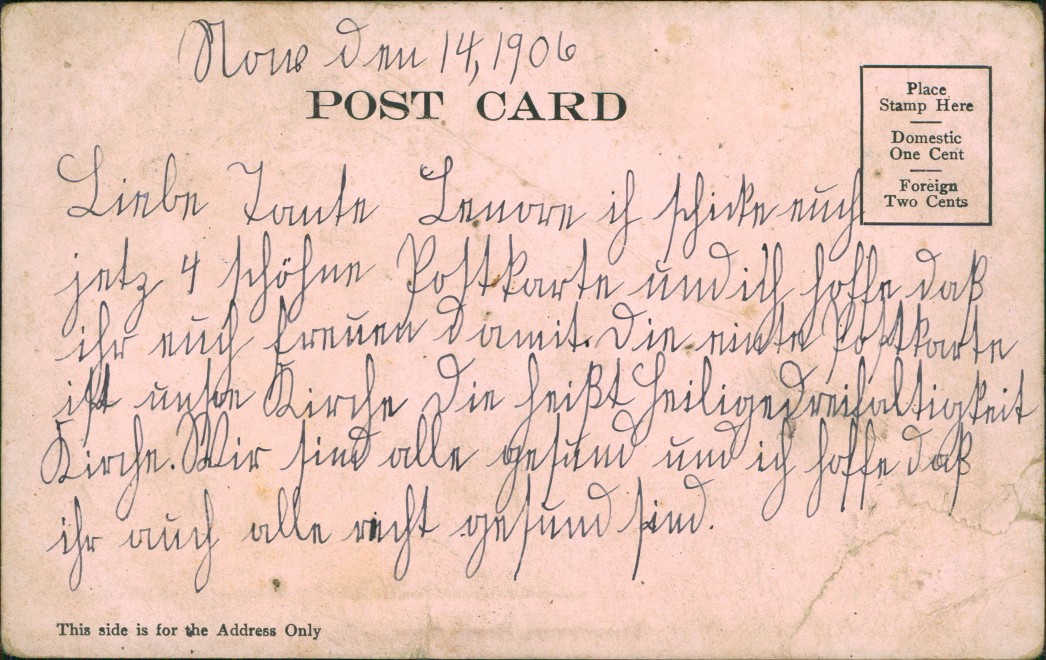 Now den 14, 1906
POST CARD
Place
Stamp Here
Domestic
One Cent
Foreign
Two Cents
Liebe Tante Lenore ich schicke euch
jetz 4 schöhne Postkarte und ich hoffe daß
ihr euch freuen damit. Die einte Postkarte
ist unsre Kirche Die heißt Heiligedreifaltigkeit
Kirche. Wir sind alle gesund und ich hoffe daß
ihr auch alle recht gesund sind.
This side is for the Address Only